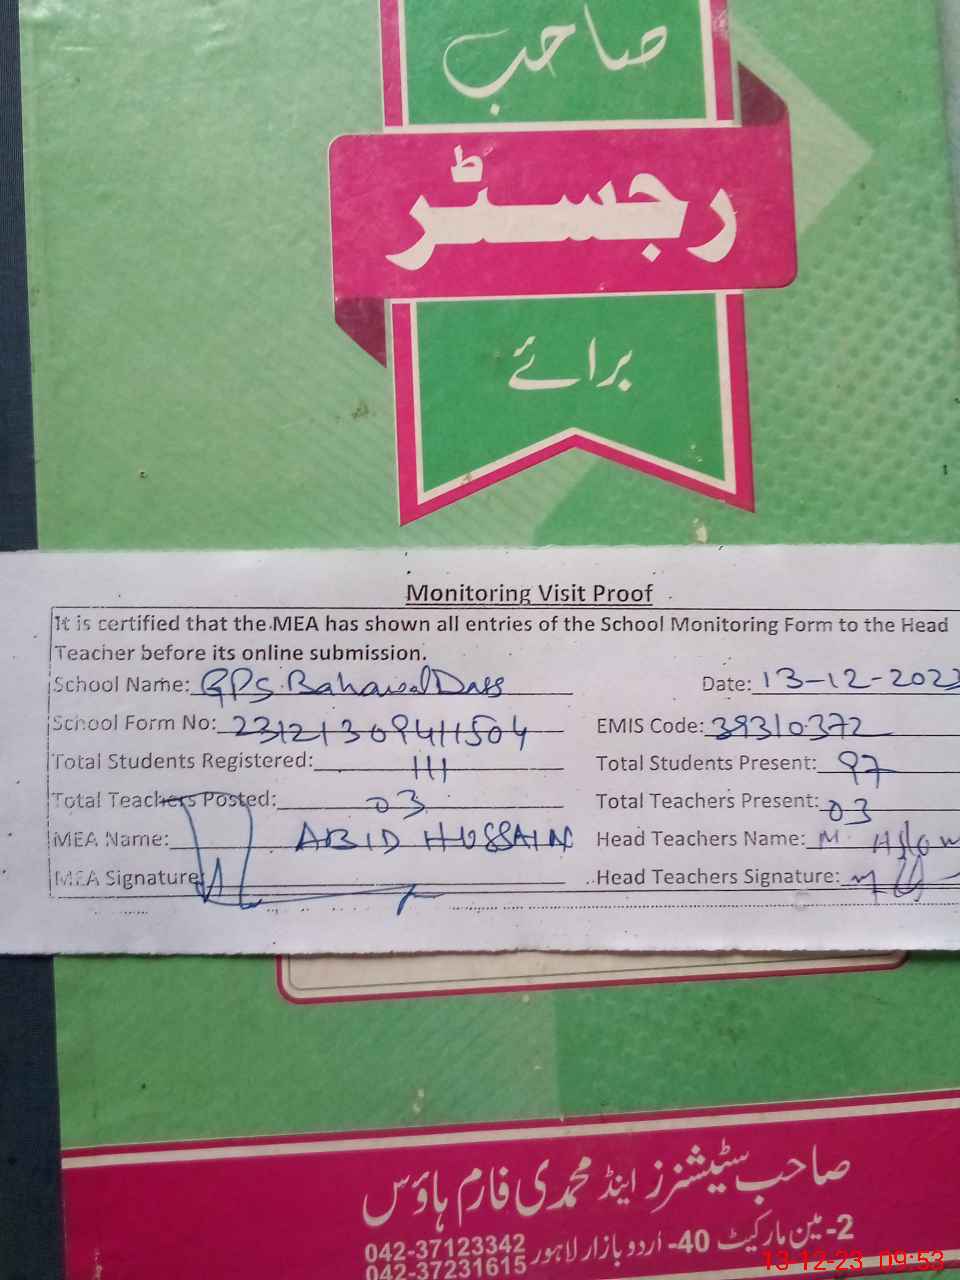 صاحب
رجسٹر
برائے
Monitoring Visit Proof
It is certified that the MEA has shown all entries of the School Monitoring Form to the Head
Teacher before its online submission.
School Name: GPS Bahawal Dass Date: 13-12-2023
School Form No: 23121309411504 EMIS Code: 39310372
Total Students Registered: 111 Total Students Present: 97
Total Teachers Posted: 03 Total Teachers Present: 03
MEA Name: ABID HUSSAIN Head Teachers Name: M. Aslam
MEA Signature: Head Teachers Signature:
صاحب سٹیشنرز اینڈ محمدی فارم ہاؤس
2-مین مارکیٹ 40-اردو بازار لاہور 042-37123342
042-37231615
13-12-23 09:53